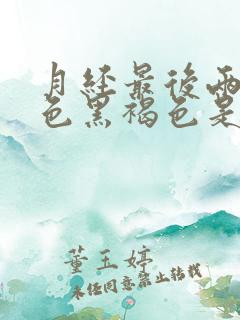 月经最後两
色黑褐色是
董玉婷
未经同意禁止转载